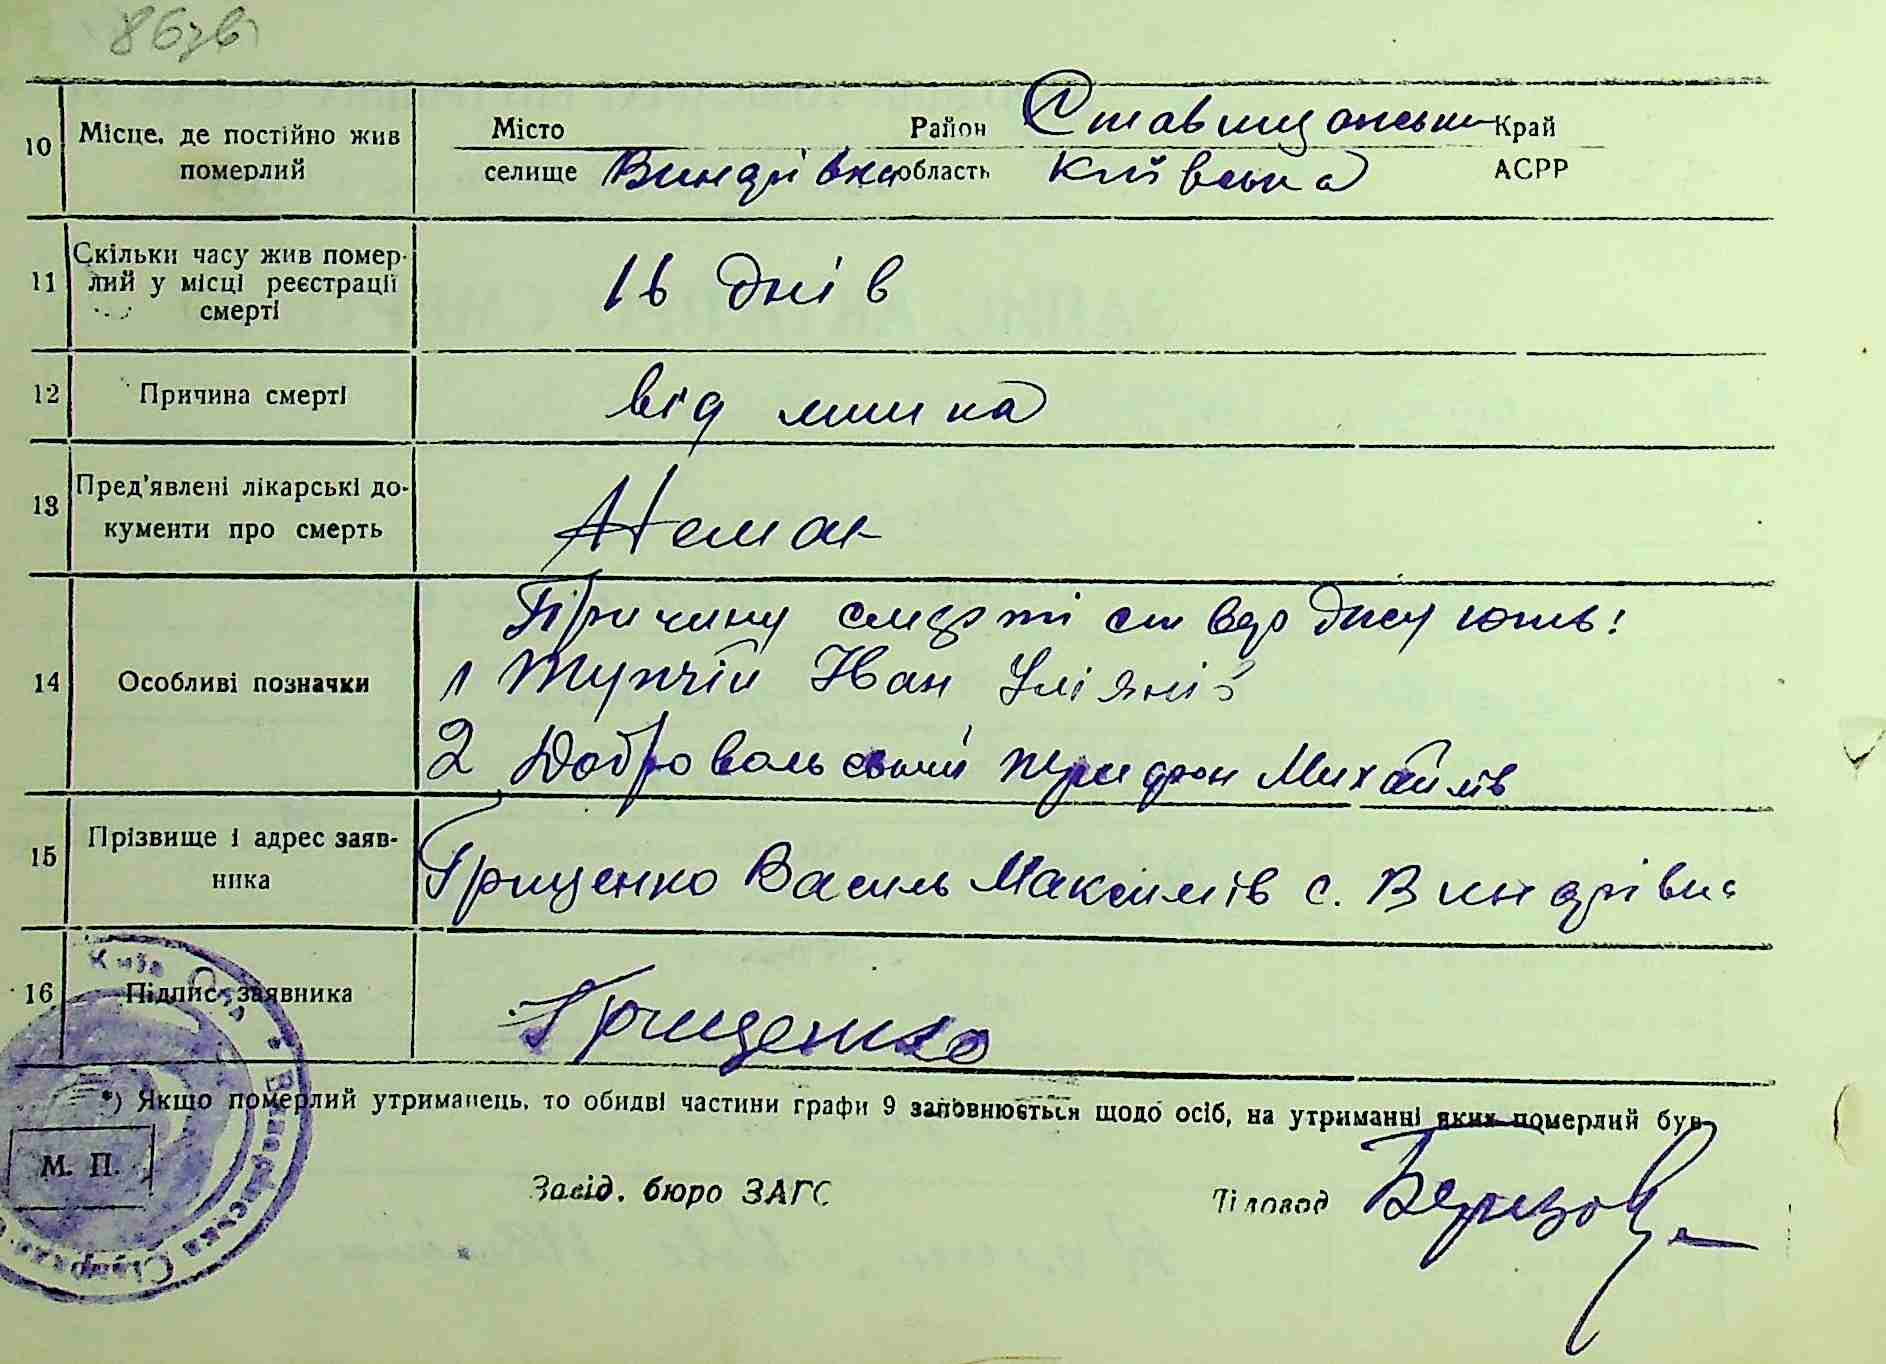 86зв
10 Місце, де постійно жив померлий
Місто Район Ставищанськи Край
селище Винарівка область Київська АСРР
11 Скільки часу жив помер-
лий у місці реєстрації
смерті
16 днів
12 Причина смерті від
13 Пред'явлені лікарські до-
кументи про смерть
Немає
14 Особливі позначки
Причину смерті стверджують:
1 Іван Уліянів
2 Добровольський Михайлів
15 Прізвище і адрес заяв-
ника
Грищенко Василь Максимів с. Винарівка
16 Підпис заявника Грищенко
*) Якщо померлий утриманець, то обидві частини графи 9 заповнюється щодо осіб, на утриманні яких померлий був
М. П.
Завід. бюро ЗАГС Діловод